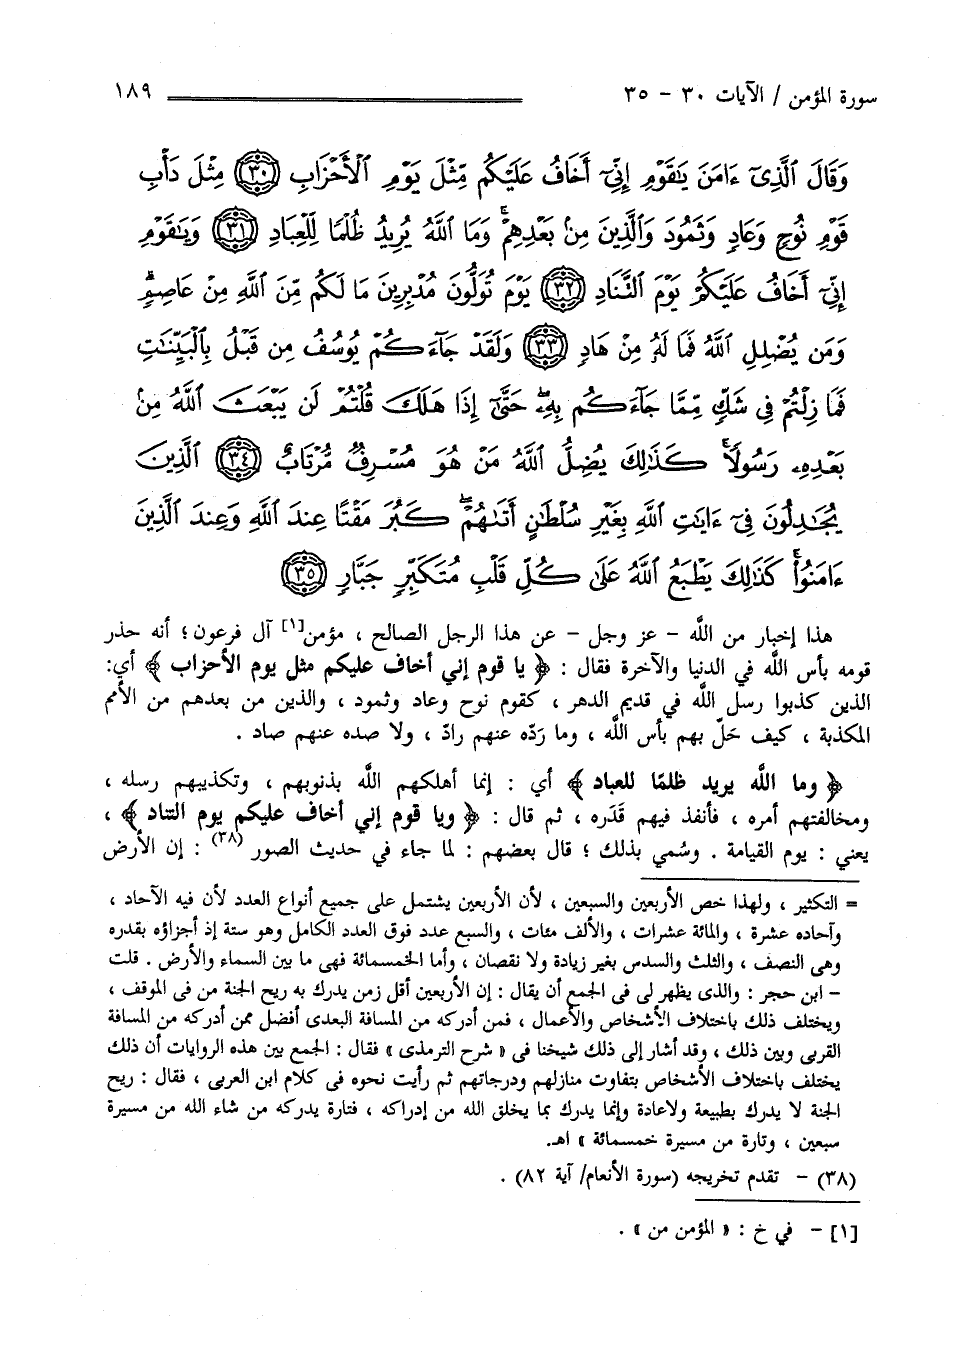 سورة المؤمن / الآيات ٣٠ - ٣٥
١٨٩
وَقَالَ ٱلَّذِىٓ ءَامَنَ يَـٰقَوْمِ إِنِّىٓ أَخَافُ عَلَيْكُم مِّثْلَ يَوْمِ ٱلْأَحْزَابِ ﴿٣٠﴾ مِثْلَ دَأْبِ
قَوْمِ نُوحٍ وَعَادٍ وَثَمُودَ وَٱلَّذِينَ مِنۢ بَعْدِهِمْ ۚ وَمَا ٱللَّهُ يُرِيدُ ظُلْمًا لِّلْعِبَادِ ﴿٣١﴾ وَيَـٰقَوْمِ
إِنِّىٓ أَخَافُ عَلَيْكُمْ يَوْمَ ٱلتَّنَادِ ﴿٣٢﴾ يَوْمَ تُوَلُّونَ مُدْبِرِينَ مَا لَكُم مِّنَ ٱللَّهِ مِنْ عَاصِمٍ ۗ
وَمَن يُضْلِلِ ٱللَّهُ فَمَا لَهُۥ مِنْ هَادٍ ﴿٣٣﴾ وَلَقَدْ جَآءَكُمْ يُوسُفُ مِن قَبْلُ بِٱلْبَيِّنَـٰتِ
فَمَا زِلْتُمْ فِى شَكٍّ مِّمَّا جَآءَكُم بِهِۦ ۖ حَتَّىٰٓ إِذَا هَلَكَ قُلْتُمْ لَن يَبْعَثَ ٱللَّهُ مِنۢ
بَعْدِهِۦ رَسُولًا ۚ كَذَٰلِكَ يُضِلُّ ٱللَّهُ مَنْ هُوَ مُسْرِفٌ مُّرْتَابٌ ﴿٣٤﴾ ٱلَّذِينَ
يُجَـٰدِلُونَ فِىٓ ءَايَـٰتِ ٱللَّهِ بِغَيْرِ سُلْطَـٰنٍ أَتَىٰهُمْ ۖ كَبُرَ مَقْتًا عِندَ ٱللَّهِ وَعِندَ ٱلَّذِينَ
ءَامَنُوا۟ ۚ كَذَٰلِكَ يَطْبَعُ ٱللَّهُ عَلَىٰ كُلِّ قَلْبِ مُتَكَبِّرٍ جَبَّارٍ ﴿٣٥﴾
هذا إخبار من اللَّه - عز وجل - عن هذا الرجل الصالح ، مؤمن[١] آل فرعون ؛ أنه حذر
قومه بأس اللَّه في الدنيا والآخرة فقال : ﴿ يا قوم إني أخاف عليكم مثل يوم الأحزاب ﴾ أي:
الذين كذبوا رسل اللَّه في قديم الدهر ، كقوم نوح وعاد وثمود ، والذين من بعدهم من الأمم
المكذبة ، كيف حَلّ بهم بأس اللَّه ، وما رَدّه عنهم رادّ ، ولا صده عنهم صاد .
﴿ وما اللَّه يريد ظلمًا للعباد ﴾ أي : إنما أهلكهم اللَّه بذنوبهم ، وتكذيبهم رسله ،
ومخالفتهم أمره ، فأنفذ فيهم قَدَره ، ثم قال : ﴿ ويا قوم إني أخاف عليكم يوم التناد ﴾ ،
يعني : يوم القيامة . وسُمي بذلك ؛ قال بعضهم : لما جاء في حديث الصور (٣٨) : إن الأرض
= التكثير ، ولهذا خص الأربعين والسبعين ، لأن الأربعين يشتمل على جميع أنواع العدد لأن فيه الآحاد ،
وآحاده عشرة ، والمائة عشرات ، والألف مئات ، والسبع عدد فوق العدد الكامل وهو ستة إذ أجزاؤه بقدره
وهى النصف ، والثلث والسدس بغير زيادة ولا نقصان ، وأما الخمسمائة فهى ما بين السماء والأرض . قلت
- ابن حجر : والذى يظهر لى فى الجمع أن يقال : إن الأربعين أقل زمن يدرك به ريح الجنة من فى الموقف ،
ويختلف ذلك باختلاف الأشخاص والأعمال ، فمن أدركه من المسافة البعدى أفضل ممن أدركه من المسافة
القربى وبين ذلك ، وقد أشار إلى ذلك شيخنا فى « شرح الترمذى » فقال : الجمع بين هذه الروايات أن ذلك
يختلف باختلاف الأشخاص بتفاوت منازلهم ودرجاتهم ثم رأيت نحوه فى كلام ابن العربى ، فقال : ريح
الجنة لا يدرك بطبيعة ولاعادة وإنما يدرك بما يخلق الله من إدراكه ، فتارة يدركه من شاء الله من مسيرة
سبعين ، وتارة من مسيرة خمسمائة » اهـ.
(٣٨) - تقدم تخريجه (سورة الأنعام/ آية ٨٢) .
[١] - في خ : « المؤمن من » .